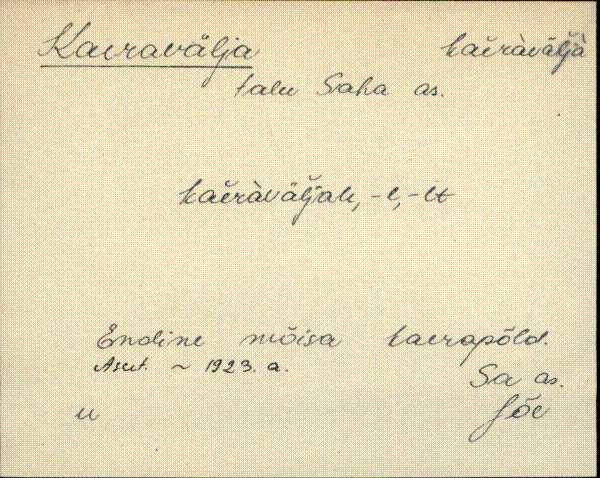 Kaeravälja kaèràväljà
talu Saha as.
kaèràväljale, -l, -lt
Endine mõisa kaerapõld.
Asut. ~ 1923. a.
Sa as.
u Jõe